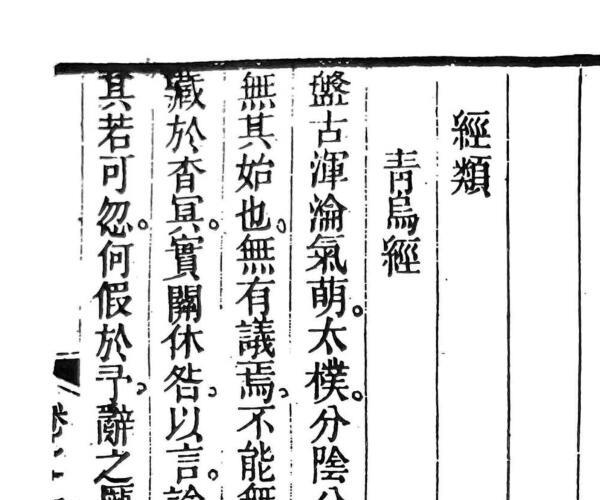 經類
青烏經
盤古渾淪氣萌。太樸。分陰
無其始也。無有議焉。不能無
藏於杳冥。實關休咎。以言。諭
其若可忽。何假於予。辭之